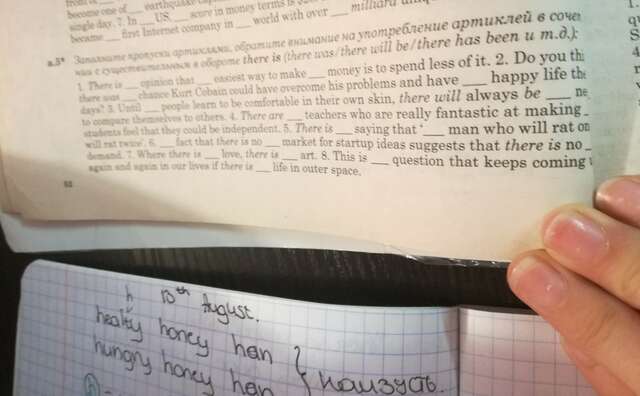 become one of ___ earthquake
single day. 7. In ___ US, ___ score in money terms is
became ___ first Internet company in ___ world with over ___ milliard
a.5* Заполните пропуски артиклями, обратите внимание на употребление артиклей в
ния с существительным в обороте there is (there was/there will be/there has been и т.д.):
1. There is ___ opinion that ___ easiest way to make ___ money is to spend less of it. 2. Do you
there was ___ chance Kurt Cobain could have overcome his problems and have ___ happy life
days? 3. Until ___ people learn to be comfortable in their own skin, there will always be ___
to compare themselves to others. 4. There are ___ teachers who are really fantastic at making
students feel that they could be independent. 5. There is ___ saying that ‘___ man who will rat
will rat twice’. 6. ___ fact that there is no ___ market for startup ideas suggests that there is no ___
demand. 7. Where there is ___ love, there is ___ art. 8. This is ___ question that keeps coming
again and again in our lives if there is ___ life in outer space.
52
h 10th August.
healty honey han
hungry honey han } наизусть.